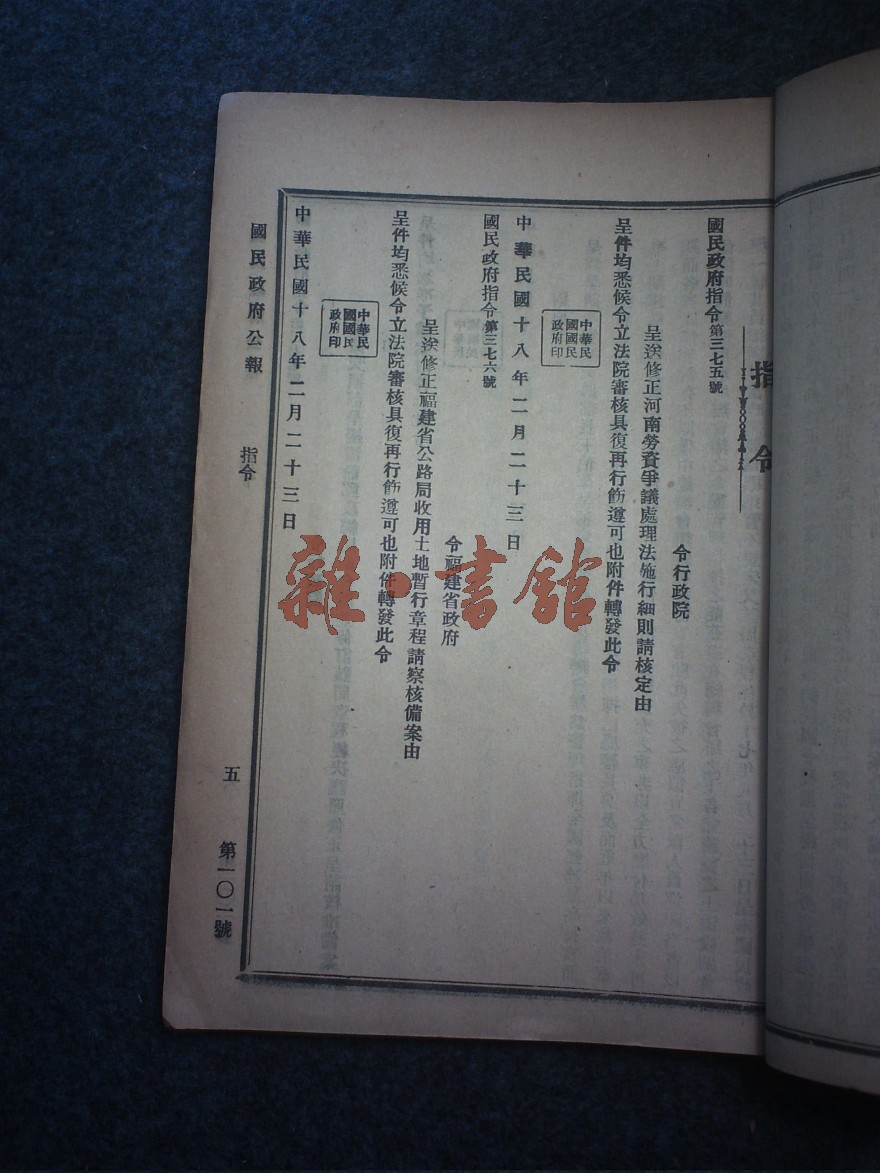 指令
國民政府指令第三七五號
令行政院
呈送修正河南勞資爭議處理法施行細則請核定由
呈件均悉候令立法院審核具復再行飭遵可也附件轉發此令
中華民
國國民
政府印
中華民國十八年二月二十三日
國民政府指令第三七六號
令福建省政府
呈送修正福建省公路局收用土地暫行章程請察核備案由
呈件均悉候令立法院審核具復再行飭遵可也附件轉發此令
中華民
國國民
政府印
中華民國十八年二月二十三日
國民政府公報 指令 五 第一〇一號
雜·書館